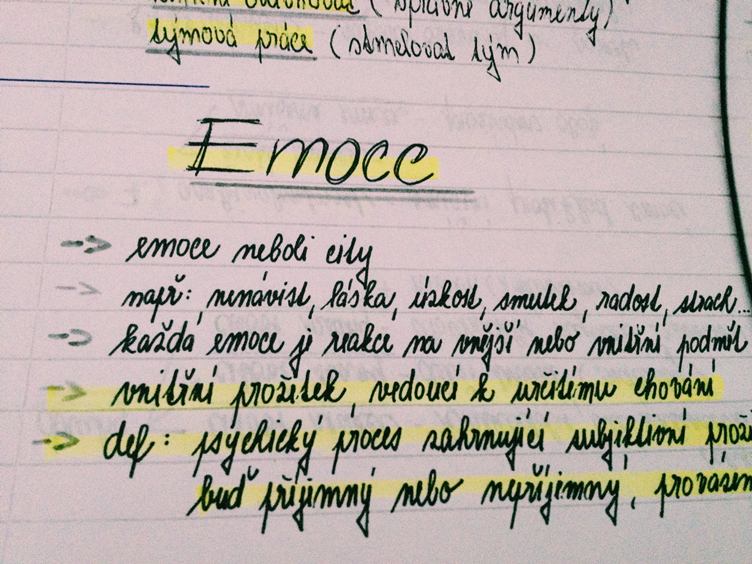 (správné argumenty)
týmová práce (stmelovat tým)
Emoce
--> emoce neboli city
-> např: nenávist, láska, úzkost, smutek, radost, strach...
--> každá emoce je reakce na vnější nebo vnitřní podnět
--> vnitřní prožitek, vedoucí k určitému chování
--> def: psychický proces zahrnující subjektivní
buď příjimný nebo nepříjimný,